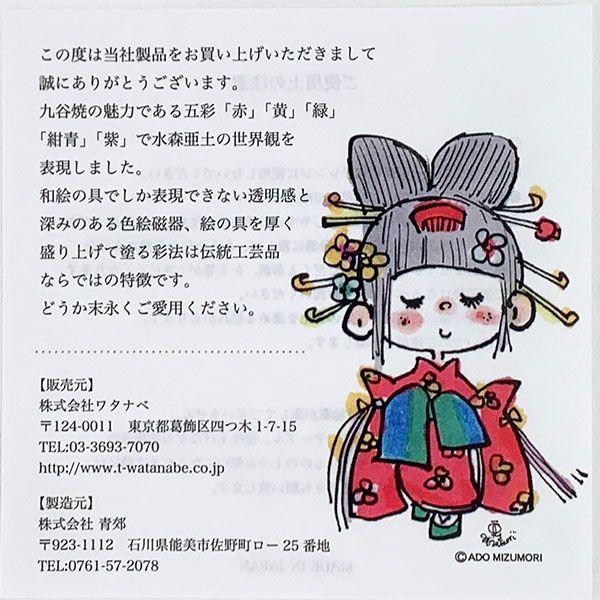 この度は当社製品をお買い上げいただきまして
誠にありがとうございます。
九谷焼の魅力である五彩「赤」「黄」「緑」
「紺青」「紫」で水森亜土の世界観を
表現しました。
和絵の具でしか表現できない透明感と
深みのある色絵磁器、絵の具を厚く
盛り上げて塗る彩法は伝統工芸品
ならではの特徴です。
どうか末永くご愛用ください。
【販売元】
株式会社ワタナベ
〒124-0011 東京都葛飾区四つ木 1-7-15
TEL:03-3693-7070
http://www.t-watanabe.co.jp
【製造元】
株式会社 青郊
〒923-1112 石川県能美市佐野町ロー 25 番地
TEL:0761-57-2078
©ADO MIZUMORI